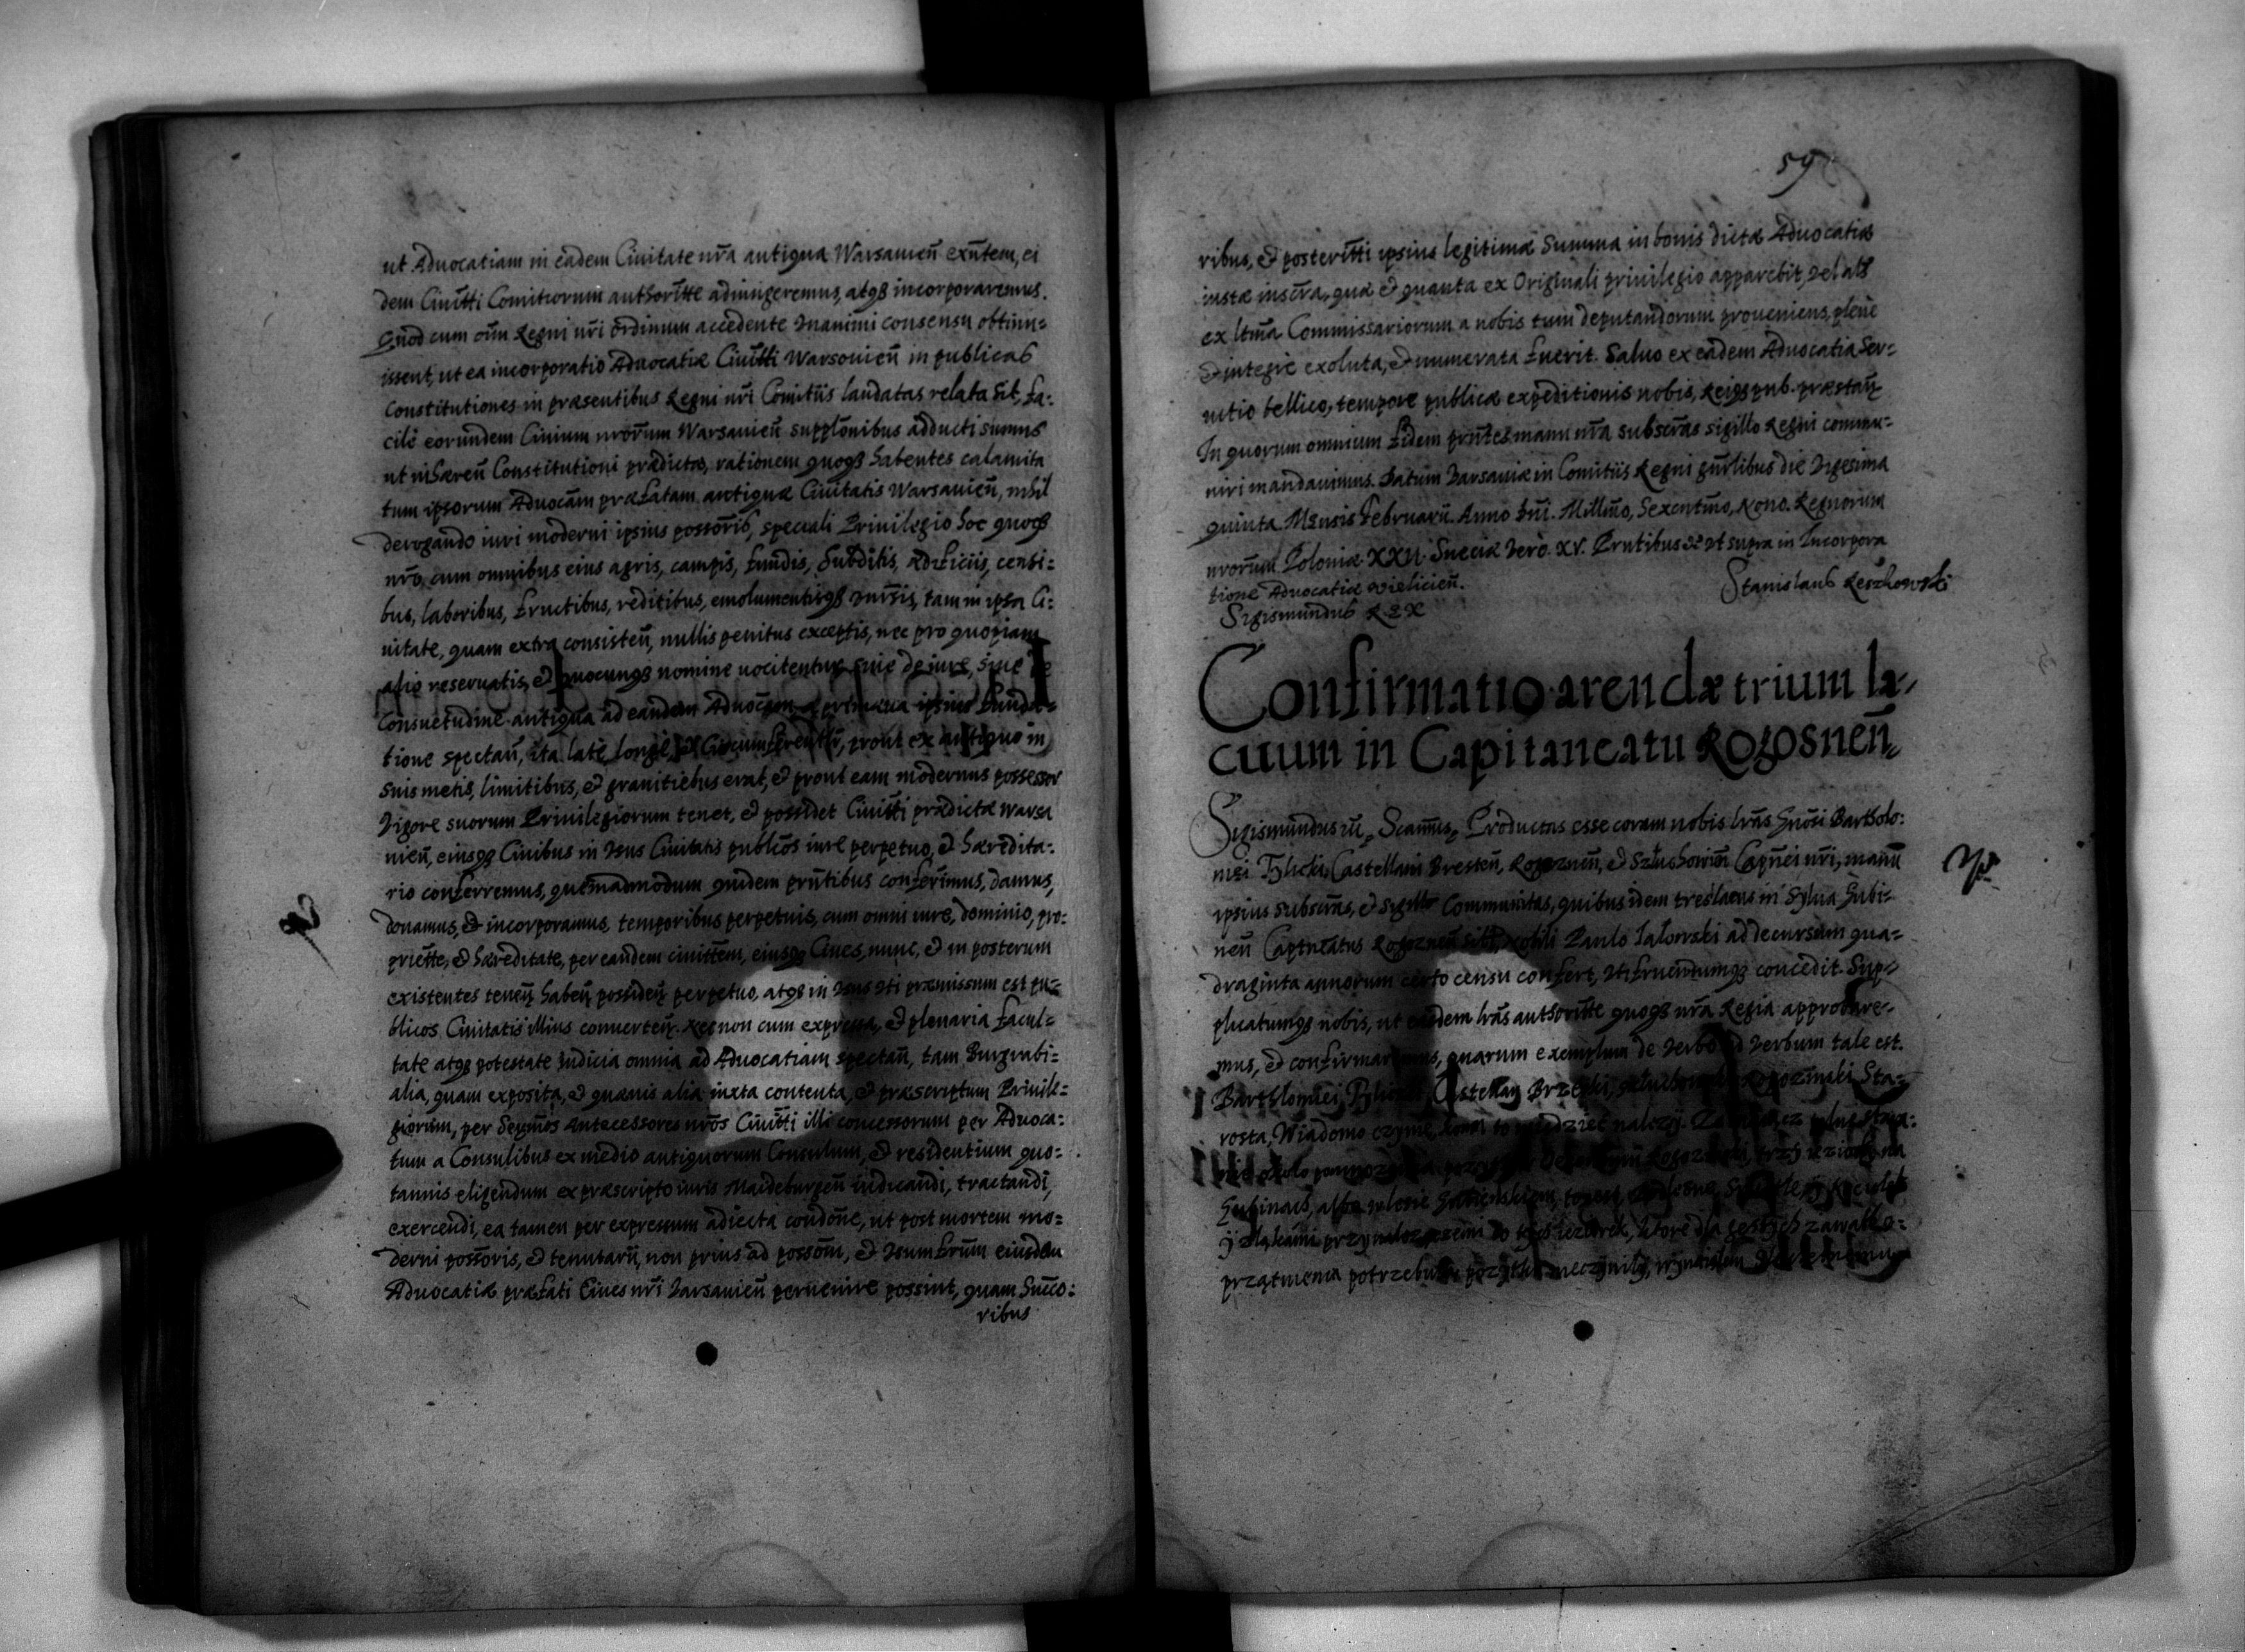 ut Aduocatiam in eadem Ciuitate nr̃a antiqua Warsauieñ exñtem, ei
dem Ciuitti Comitiorum authoritte adiungeremus, atqꝫ incorporaremus.
Quod cum oĩm Regni nr̃i ordinum accedente Vnanimi consensu obtinu=
issent, ut ea incorporatio Aduocatiæ Ciuitti Warsouieñ in publicas
Constitutiones in præsentibus Regni nr̃i Comitiis laudatas relata sit, fa:
cilè eorundem Ciuium nrõrum Warsauieñ supplõnibus adducti sumus
ut inhæreñ Constitutioni prædictæ, rationem quoqꝫ habentes calamita
tum ipsorum Aduocãm præfatam antiquæ Ciuitatis Warsauieñ, nihil
derogando iuri moderni ipsius possoris, speciali Priuilegio hoc quoqꝫ
nr̃o, cum omnibus eius agris, campis, fundis, Subditis, Ædificiis, censi=
bus, laboribus, fructibus, reditibus, emolumentisqꝫ vnr̃sis, tam in ipsa Ci:
uitate, quam extra consisteñ, nullis penitus exceptis, nec pro quopiam
alio reseruatis, et quocunqꝫ nomine uocitentur, siue de iure, siue de
Consuetudine antiqua ad eandem Aduocãm a primæua ipsius funda=
tione spectañ, ita latè, longè, et circumferentÿ, prout ex antiquo in
suis metis, limitibus, et granitiebus erat, et prout eam modernus possessor
Vigore suorum Priuilegiorum tenet, et possidet Ciuitti prædictæ Warsa
uieñ, eiusqꝫ Ciuibus in Vsus Ciuitatis publicos iure perpetuo, et hæredita:
rio conferremus, quemadmodum quidem prñtibus conferimus, damus,
donamus, et incorporamus, temporibus perpetuis, cum omni iure, dominio, pro:
priette, et hæreditate, per eandem ciuittem, eiusqꝫ Ciues, nunc, et in posterum
existentes teneñ habeñ possideñ perpetuo, atqꝫ in Vsus Vti præmissum est pu=
blicos Ciuitatis illius conuerteñ. Nec non cum expressa, et plenaria facul=
tate atqꝫ potestate iudicia omnia ad Aduocatiam spectañ, tam Burgrabi=
alia, quam exposita, et quæuis alia iuxta contenta, et præscriptum Priuile=
giorum, per Sermos Antecessores nros Ciuitti illi concessorum per Aduoca:
tum a Consulibus ex medio antiquorum Consulum, et residentium quo:
tannis eligendum ex præscripto iuris Maideburgeñ iudicandi, tractandi,
exercendi, ea tamen per expressum adiecta condõne, ut post mortem mo=
derni possoris, et tenutarij, non prius ad possom, et Vsumfrum eiusdem
Aduocatiæ præfati Ciues nr̃i Varsauieñ peruenire possint, quam Succo:
ribus
59
ribus, et posteritti ipsius legitimæ Summa in bonis dictæ Aduocatiæ
iustæ inscra, quæ et quanta ex Originali priuilegio apparebit, Vel als
ex ltma Commissariorum a nobis tum deputandorum proueniens, plene
et integre exoluta, et numerata fuerit. Saluo ex eadem Aduocatia Ser=
uitio bellico, tempore publicæ expeditionis nobis, Reiqꝫ pub. præstañ
In quorum omnium fidem prñtes manu nr̃a subscras sigillo Regni commu=
niri mandauimus. Datum Varsauiæ in Comitiis Regni gñrlibus die Vigesima
quinta Mensis Februarij. Anno Dni. Millmo, Sexcentmo, Nono. Regnorum
nrõrum Poloniæ XXII. Sueciæ Vero. XV. Prntibus etc Vt supra in Incorpora
tione Aduocatiæ Wielicieñ.
Stanislaus Reszkowski
Sigismundus REX
Confirmatio arendæ trium la=
cuum in Capitaneatu Rogosneñ
Sigismundus Productas esse coram nobis lras Gnosi Bartholo:
mei Tylicki, Castellani Bresteñ, Rogozneñ, et Szluchowieñ Capnei nr̃i, manu
ipsius subscras, et sigillo Communitas, quibus idem tres lacus in Sylua Gubi=
neñ Captneatus Rogozneñ sitos, Nobili Paulo Jałowski ad decursum qua=
draginta annorum certo censu confert, Vtifruendumqꝫ concedit. Sup=
plicatumqꝫ nobis, ut easdem lras authoritte quoqꝫ nr̃a Regia approbare=
mus, et confirmaremus, quarum exemplum de Verbo ad Verbum tale est.
Bartholomiei Tylicki Castellan Brzeski, Rogozinski Sta=
rosta, Wiadomo czynię, komu to wiedzieć należy.
Gubinach, albo w lesie
y z łąkami przynależącemi do tych ieziorek, ktore dla gęstych zawałko=
prząthnienia potrzebuią pozytku nieczyniły, wynaiąłem